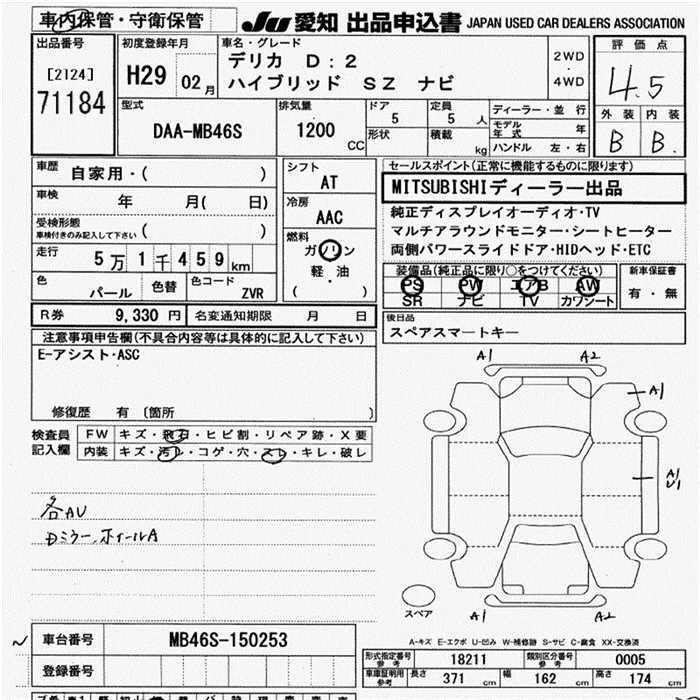 車内保管・守衛保管
JU 愛知 出品申込書 JAPAN USED CAR DEALERS ASSOCIATION
出品番号
[2124]
71184
初度登録年月
H29 02月
車名・グレード
デリカ D:2
ハイブリッド SZ ナビ
2WD
・
4WD
評価点
4.5
外装 内装
B B.
型式
DAA-MB46S
排気量
1200 CC
ドア
5
形状
定員
5 人
積載
kg
ディーラー・並行
モデル年式 年
ハンドル 左・右
車歴
自家用・( )
車検
年 月( 日)
受検形態
車検付きのみ記入して下さい ( )
走行
5万1千459km
色
パール
色替
色コード
ZVR
シフト
AT
冷房
AAC
燃料
ガソリン
軽・油
( )
セールスポイント(正常に機能するものに限ります)
MITSUBISHIディーラー出品
純正ディスプレイオーディオ・TV
マルチアラウンドモニター・シートヒーター
両側パワースライドドア・HIDヘッド・ETC
装備品(純正品に限り○をつけてください)
PS PW エアB AW
SR ナビ TV カワシート
新車保証書
有・無
R券 9,330 円
名変通知期限 月 日
後日品
スペアスマートキー
注意事項申告欄(不具合内容等は具体的に記入して下さい)
E-アシスト・ASC
修復歴 有 〔箇所 〕
検査員
記入欄
FW キズ・飛石・ヒビ割・リペア跡・X要
内装 キズ・汚レ・コゲ・穴・スレ・キレ・破レ
各AU
Dミラー、ホイールA
A1 A2
A1
A1
U1
スペア
A1 A2
A-キズ E-エクボ U-凹み W-補修跡 S-サビ C-腐食 XX-交換済
車台番号 MB46S-150253
登録番号
形式指定番号
参考
18211
類別区分番号
参考
0005
車庫証明用
参考
長さ 371 cm 幅 162 cm 高さ 174 cm